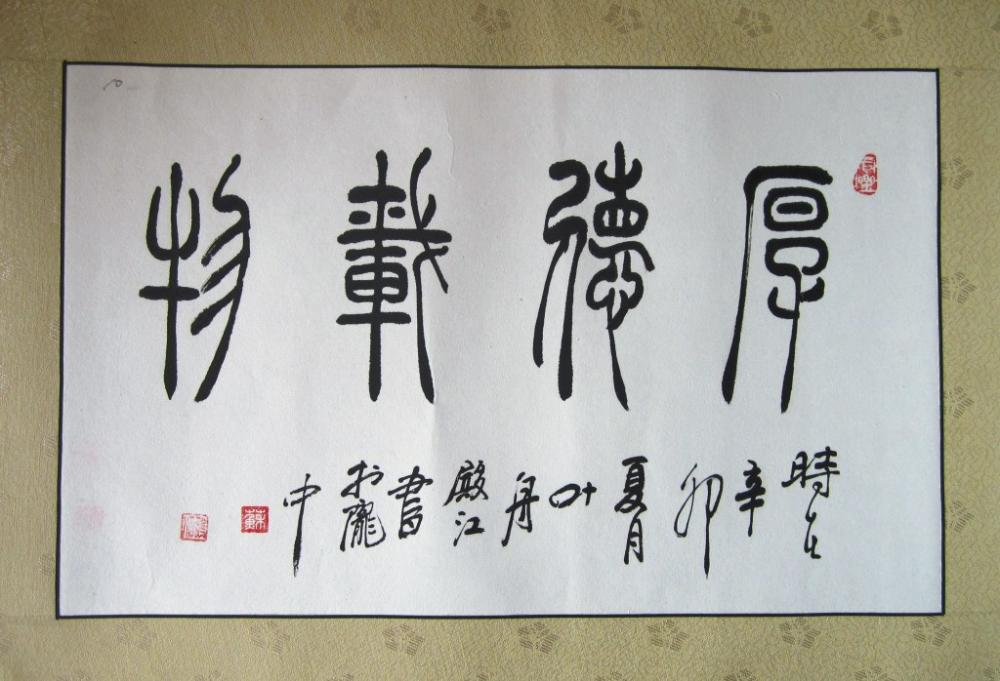 厚德載物
時在辛卯夏月叶舟殿江書於隴中
蘇